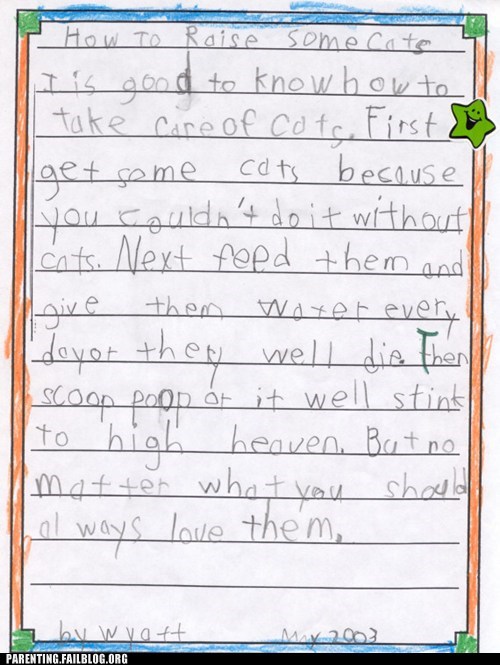 How To Raise some Cats
I is good to know how to
take care of cats. First
get some cats because
you couldn't do it without
cats. Next feed them and
give them water every
dayor they well die. Then
scoop poop or it well stink
to high heaven. But no
matter what you should
al ways love them.
by Wyatt May 2003
PARENTING.FAILBLOG.ORG